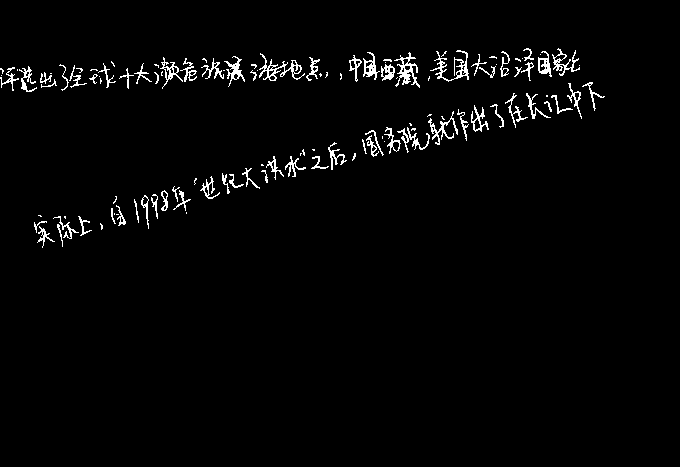 评选出了全球十大濒危旅游地点,中国西藏,美国大沼泽国家公
实际上,自1998年“世纪大洪水”之后,国务院就作出了在长江中下